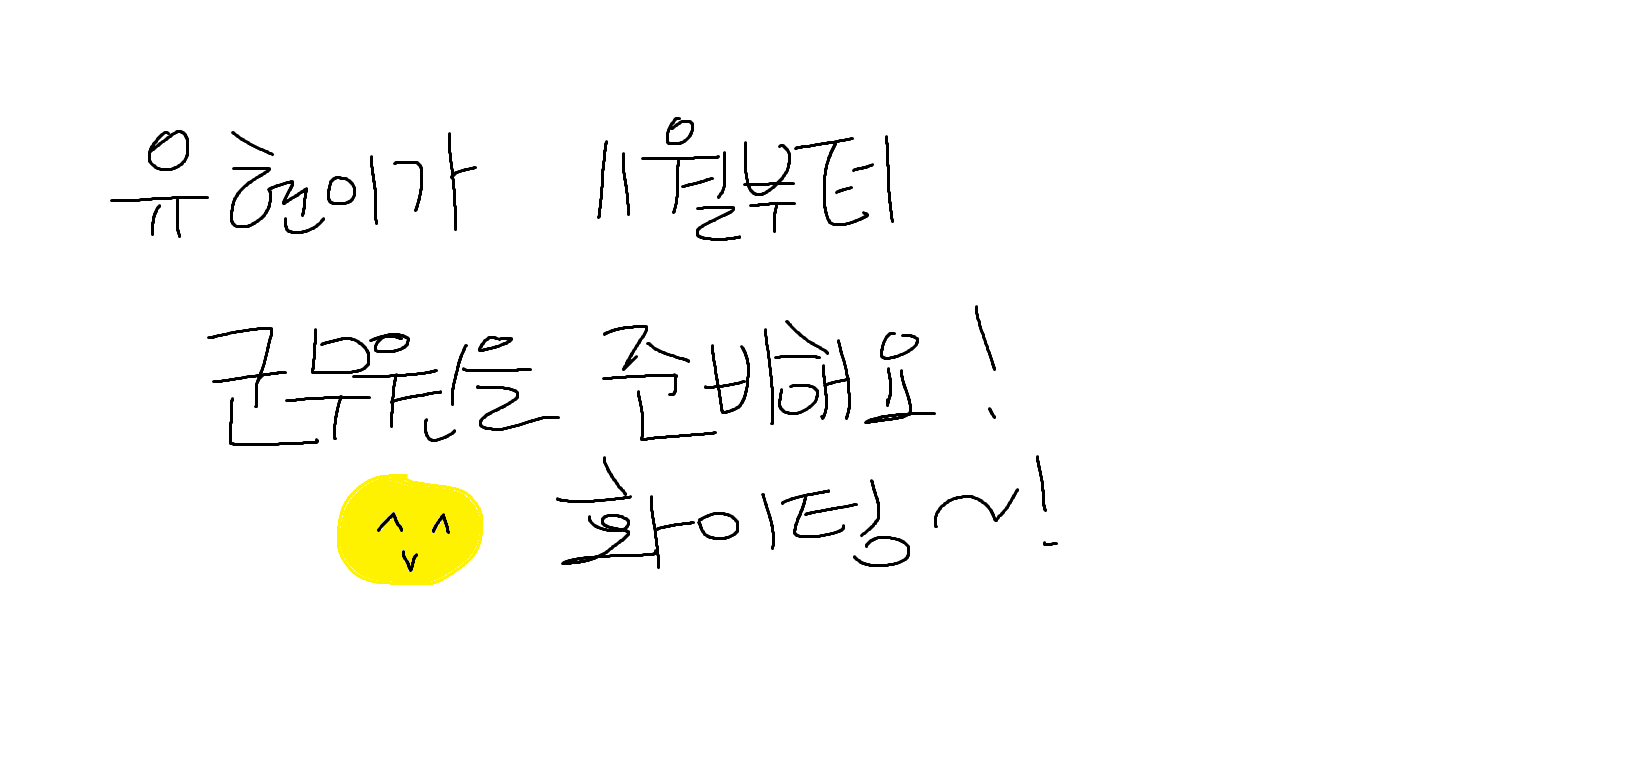 유현이가 11월부터
군무원을 준비해요!
화이팅~!